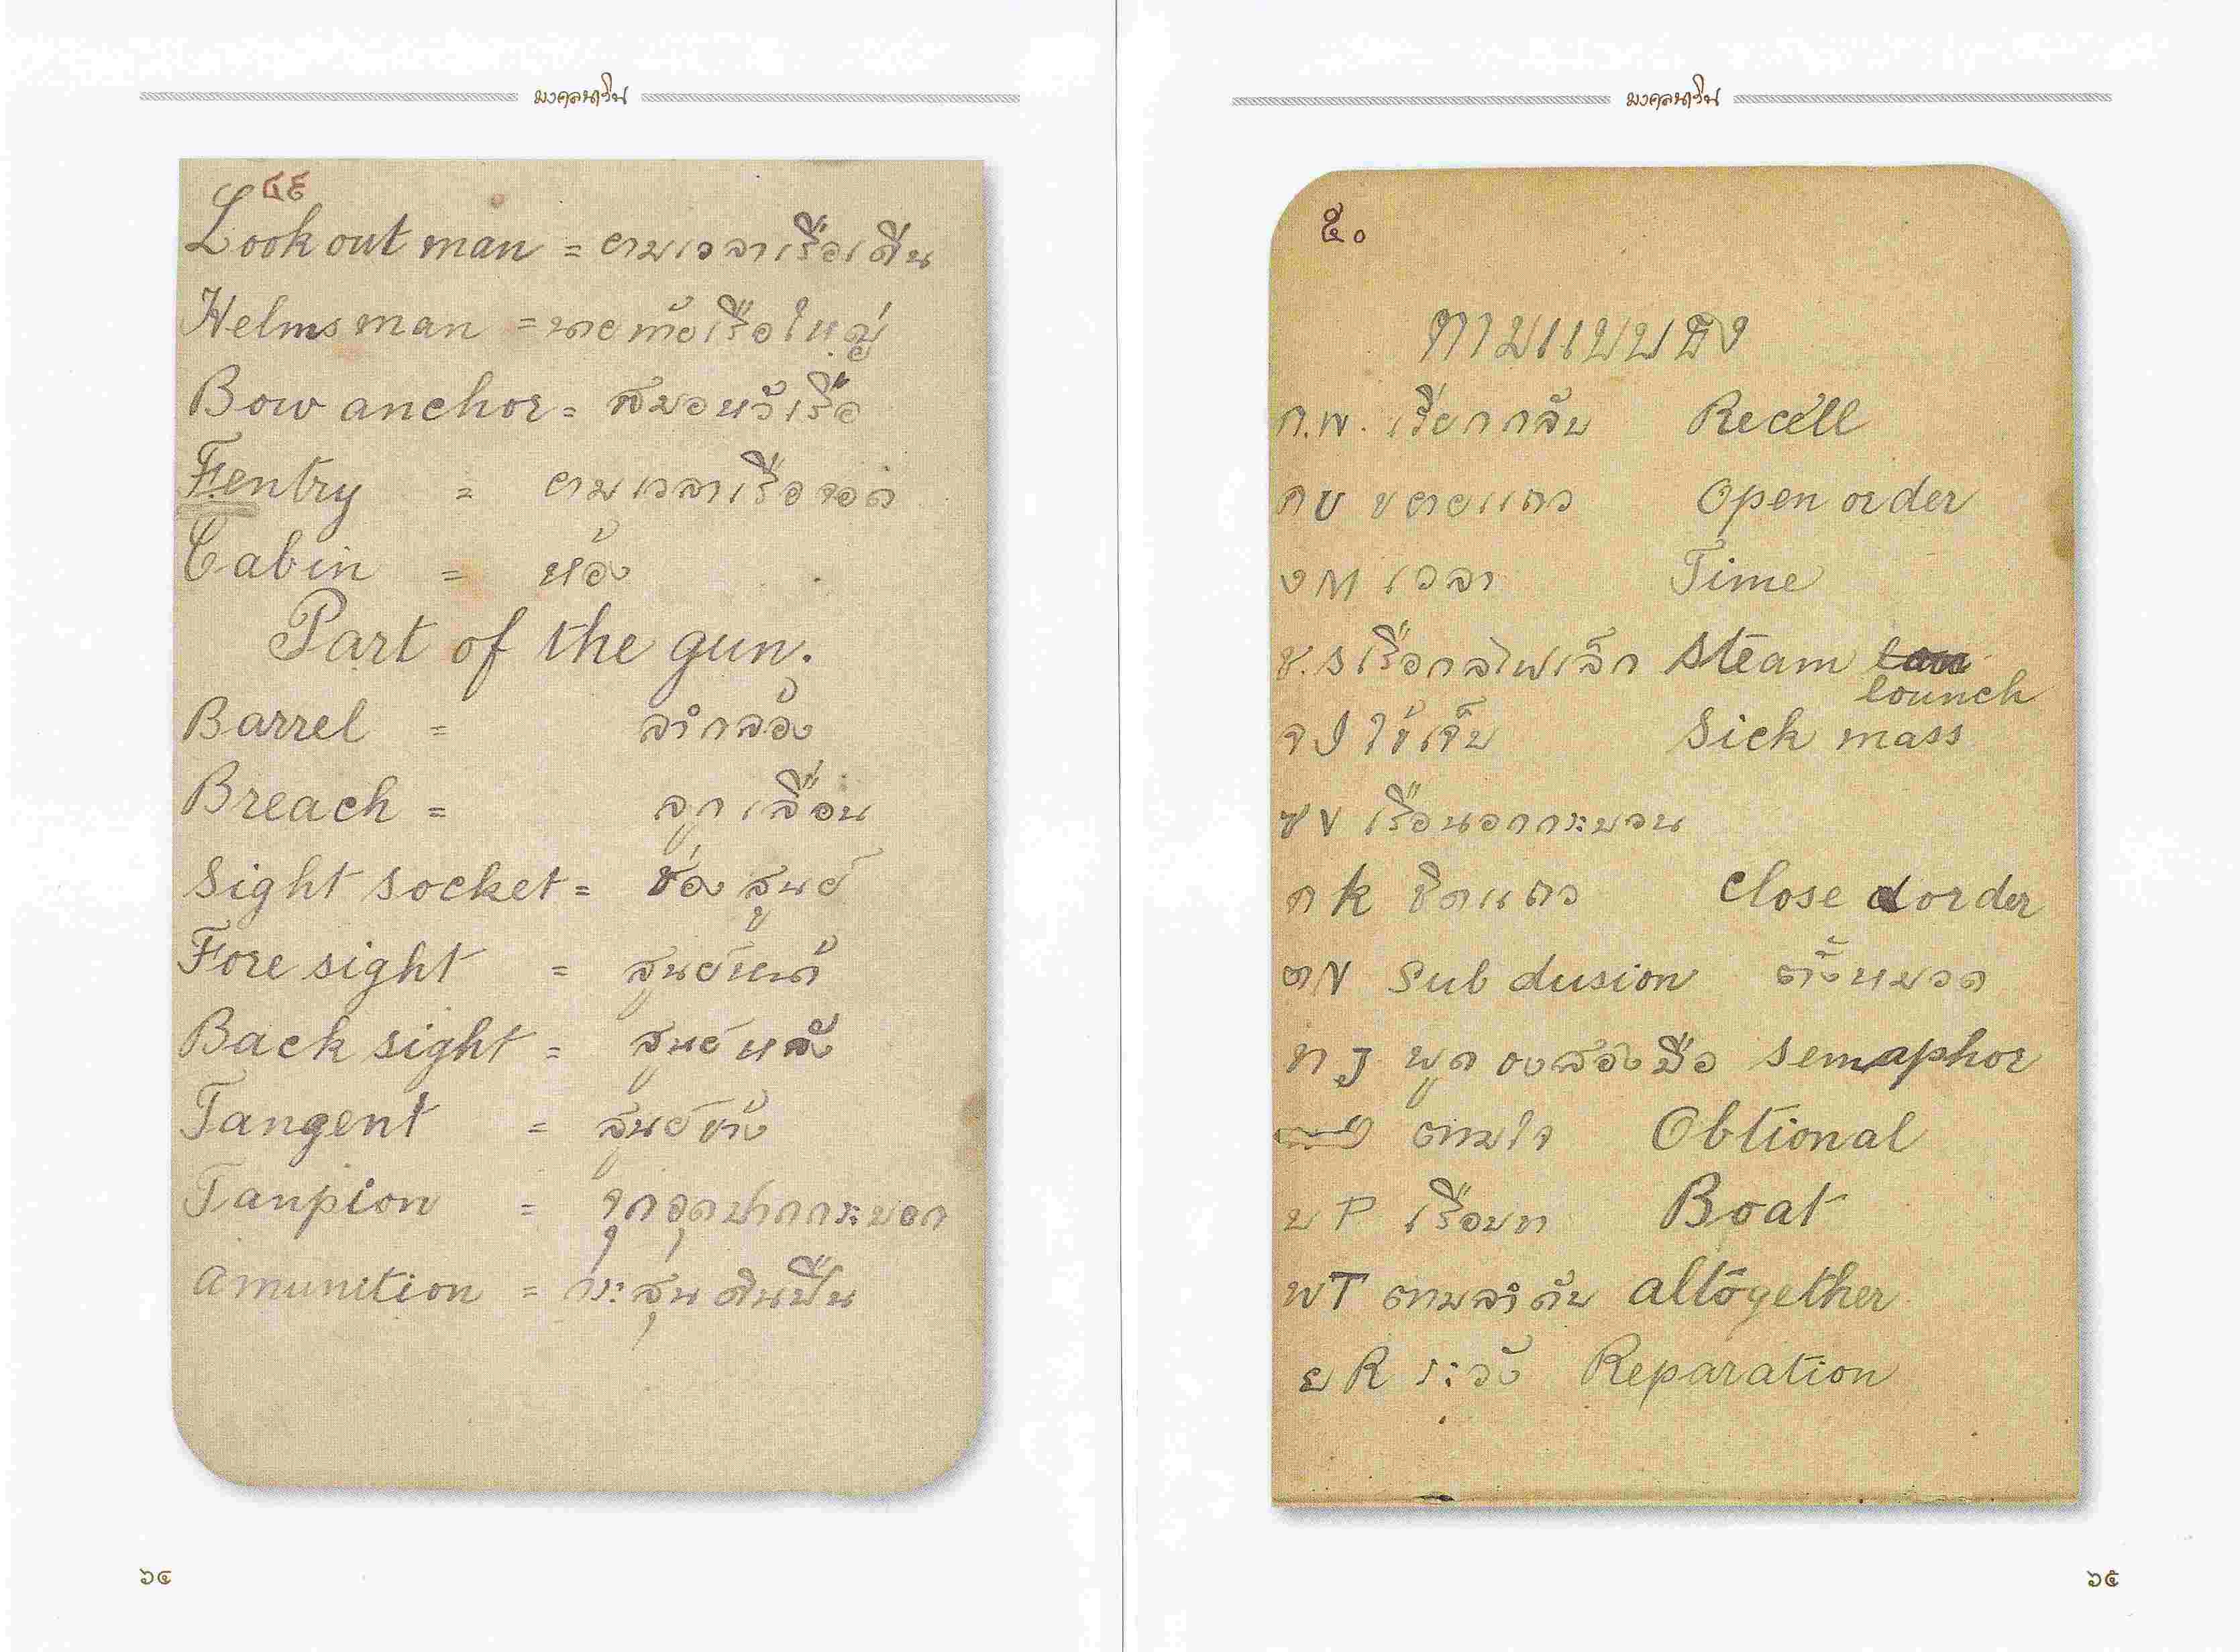 มงคลนาวิน
๔๙
Look out man = ยามเวลาเรือเดิน
Helmsman = นายท้ายเรือใหญ่
Bow anchor = สมอหัวเรือ
Fentry = ยามเวลาเรือจอด
Cabin = ห้อง
Part of the gun.
Barrel = ลำกล้อง
Breach = ลูกเลื่อน
Sight socket = ช่องสูนย์
Fore sight = สูนย์หน้า
Back sight = สูนย์หลัง
Tangent = สูนย์ข้าง
Tanpion = จุกอุดปากกระบอก
amunition = กระสุนดินปืน
๖๔
มงคลนาวิน
๕๐
ตามแบบธง
ก.พ. เรียกกลับ Recall
กบ ขยายแถว Open order
งM เวลา Time
ช.S เรือกลไฟเล็ก Steam
lounch
จJ ไข้เจ็บ Sick mass
ซV เรือนอกกระบวน
กk ชิดแถว Close order
ตN Sub dusion ตั้งหมวด
ทJ พูดธงสองมือ Semaphor
ตามใจ Obtional
บP เรือบท Boat
พT ตามลำดับ altogether
ยR ระวัง Reparation
๖๕